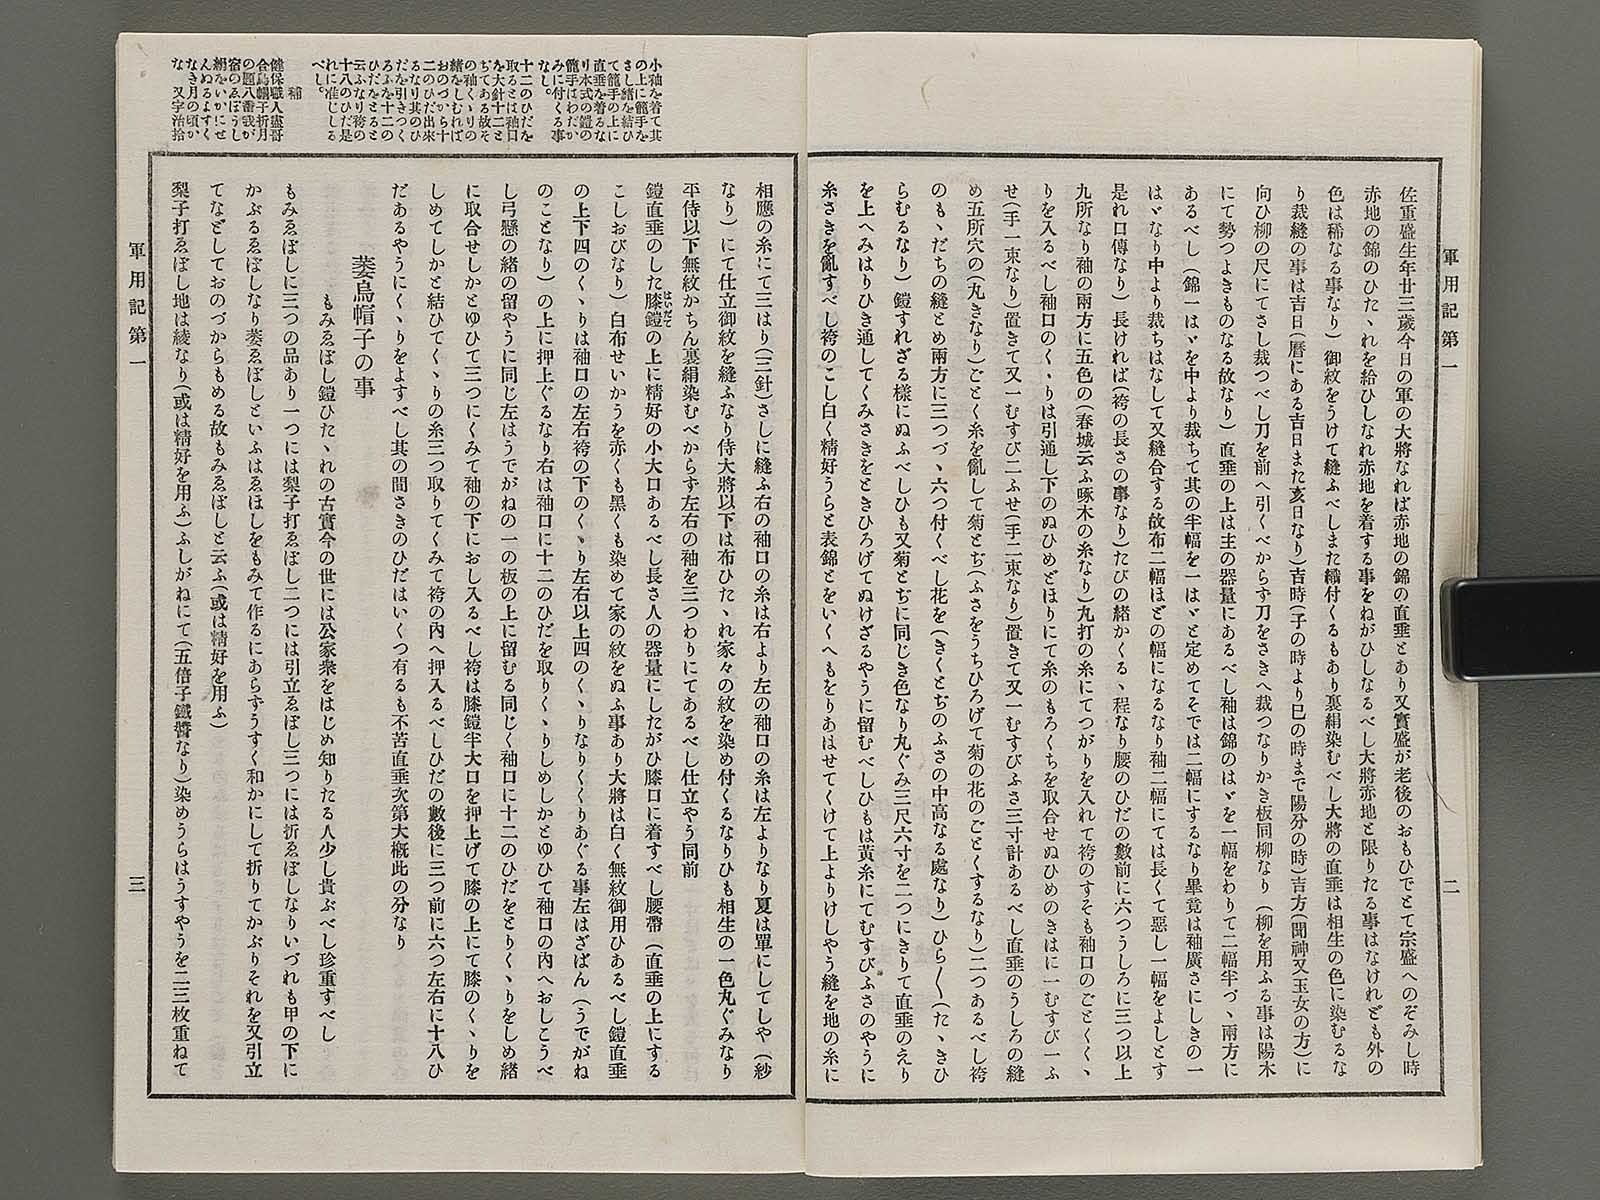 軍用記第一
二
佐重盛生年廿三歲今日の軍の大將なれば赤地の錦の直垂とあり又實盛が老後のおもひでとて宗盛へのぞみし時
赤地の錦のひたゝれを給ひしなれ赤地を着する事をねがひしなるべし大將赤地と限りたる事はなけれども外の
色は稀なる事なり）御紋をうけて縫ふべしまた織付くるもあり裏絹染むべし大將の直垂は相生の色に染むるな
り裁縫の事は吉日（曆にある吉日また亥日なり）吉時（子の時より巳の時まで陽分の時）吉方（聞神又玉女の方）に
向ひ柳の尺にてさし裁つべし刀を前へ引くべからず刀をさきへ裁つなりかき板同柳なり（柳を用ふる事は陽木
にて勢つよきものなる故なり）直垂の上は主の器量にあるべし袖は錦のはゞを一幅をわりて二幅半づゝ兩方に
あるべし（錦一はゞを中より裁ちて其の半幅を一はゞと定めてそでは二幅にするなり畢竟は袖廣さにしきの一
はゞなり中より裁ちはなして又縫合する故布二幅ほどの幅になるなり袖二幅にては長くて惡し一幅をよしとす
是れ口傳なり）長ければ袴の長さの事なり）たびの緖かくるゝ程なり腰のひだの數前に六つうしろに三つ以上
九所なり袖の兩方に五色の（春城云ふ啄木の糸なり）丸打の糸にてつがりを入れて袴のすそも袖口のごとくくゝ
りを入るべし袖口のくゝりは引通し下のぬひめどほりにて糸のもろくちを取合せぬひめのきはに一むすび一ふ
せ（手一束なり）置きて又一むすび二ふせ（手二束なり）置きて又一むすびふさ三寸計あるべし直垂のうしろの縫
め五所穴の（丸きなり）ごとく糸を亂して菊とぢ（ふさをうちひろげて菊の花のごとくするなり）二つあるべし袴
のもゝだちの縫とめ兩方に三つづゝ六つ付くべし花を（きくとぢのふさの中高なる處なり）ひら〱（たゝきひ
らむるなり）鎧すれざる樣にぬふべしひも又菊とぢに同じき色なり丸ぐみ三尺六寸を二つにきりて直垂のえり
を上へみはりひき通してくみさきをときひろげてぬけざるやうに留むべしひもは黃糸にてむすびふさのやうに
糸さきを亂すべし袴のこし白く精好うらと表錦とをいくへもをりあはせてくけて上よりけしやう縫を地の糸に
小袖を着て其
の上に籠手を
さし緖を結ひ
て籠手の上に
直垂を着るな
り本式の鎧の
籠手はわだか
みに付くる事
なし。
十二のひだを
取るとは袖口
を大針十二と
ぢてある故そ
の袖くゝりの
緖をしむれば
おのづから十
二のひだ出來
るなり其のひ
だを引きつく
ろふを十二の
ひだをとると
云ふなり袴の
十八のひだ是
れに准じしる
べし。
補
健保職人盡哥
合烏帽子折月
の題八番我が
宿のゑぼうし
絹をいかにせ
んぬるよすく
なき月の頃か
な　又字治拾
相應の糸にて三はり（三針）さしに縫ふ右の袖口の糸は右より左の袖口の糸は左よりなり夏は單にしてしや（紗
なり）にて仕立御紋を縫ふなり侍大將以下は布ひたゝれ家々の紋を染め付くるなりひも相生の一色丸ぐみなり
平侍以下無紋かちん裏絹染むべからず左右の袖を三つわりにてあるべし仕立やう同前
鎧直垂のした膝鎧の上に精好の小大口あるべし長さ人の器量にしたがひ膝口に着すべし腰帶（直垂の上にする
こしおびなり）白布せいかうを赤くも黑くも染めて家の紋をぬふ事あり大將は白く無紋御用ひあるべし鎧直垂
の上下四のくゝりは袖口の左右袴の下のくゝり左右以上四のくゝりなりくくりあぐる事左はざばん（うでがね
のことなり）の上に押上ぐるなり右は袖口に十二のひだを取りくゝりしめしかとゆひて袖口の內へおしこうべ
し弓懸の緖の留やうに同じ左はうでがねの一の板の上に留むる同じく袖口に十二のひだをとりくゝりをしめ緖
に取合せしかとゆひて三つにくみて袖の下におし入るべし袴は膝鎧半大口を押上げて膝の上にて膝のくゝりを
しめてしかと結ひてくゝりの糸三つ取りてくみて袴の內へ押入るべしひだの數後に三つ前に六つ左右に十八ひ
だあるやうにくゝりをよすべし其の間さきのひだはいくつ有るも不苦直垂次第大槪此の分なり
萎烏帽子の事
もみゑぼし鎧ひたゝれの古實今の世には公家衆をはじめ知りたる人少し貴ぶべし珍重すべし
もみゑぼしに三つの品あり一つには梨子打ゑぼし二つには引立ゑぼし三つには折ゑぼしなりいづれも甲の下に
かぶるゑぼしなり萎ゑぼしといふはゑほしをもみて作るにあらずうすく和かにして折りてかぶりそれを又引立
てなどしておのづからもめる故もみゑぼしと云ふ（或は精好を用ふ）
梨子打ゑぼし地は綾なり（或は精好を用ふ）ふしがねにて（五倍子鐵醬なり）染めうらはうすやうを二三枚重ねて
軍用記第一
三